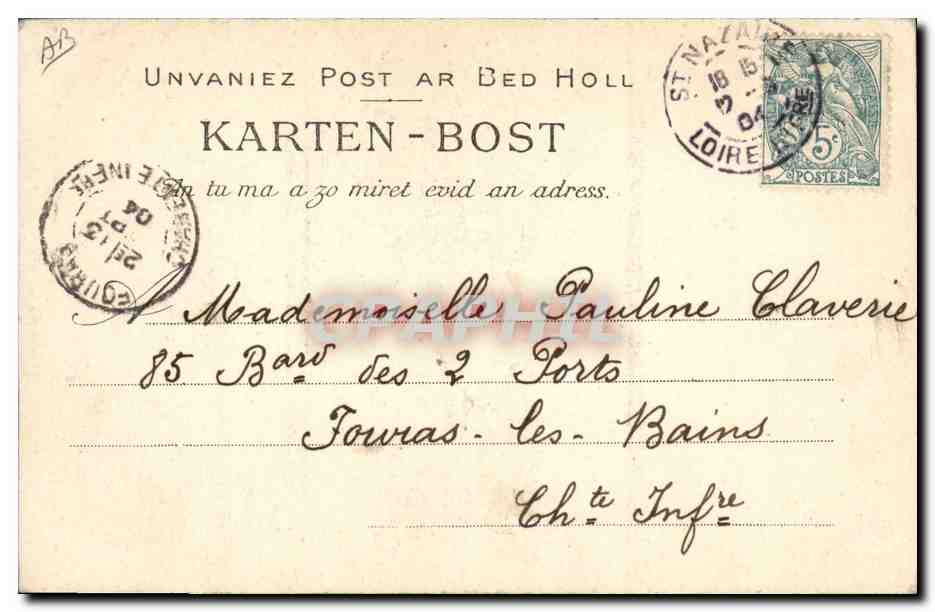 AB
UNVANIEZ POST AR BED HOLL
KARTEN-BOST
An tu ma a zo miret evid an adress.
ST NAZAIRE
18 15
3
04
LOIRE INFRE
5c
POSTES
FOURAS
13
04
CHARENTE INFRE
A Mademoiselle Pauline Claverie
85 Bard des 2 Ports
Fouras-les-Bains
Chte Infre
CPAPHIL